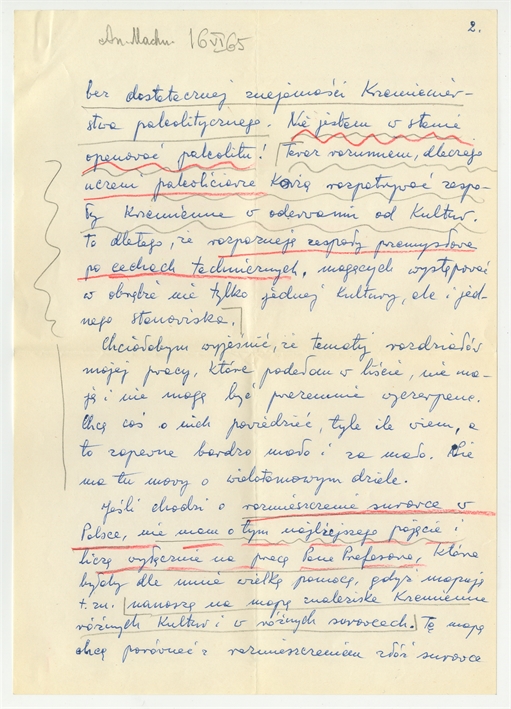 2.
An. Machn. 16 VI 65
bez dostatecznej znajomości Krzemieniar-
stwa paleolitycznego. Nie jestem w stanie
opanować paleolitu! Teraz rozumiem, dlaczego
uczeni paleoliciarze każą rozpatrywać zespo-
ły Krzemienne w oderwaniu od Kultur.
to dlatego, że rozpoznają zespoły przemysłowe
po cechach technicznych, mogących występować
w obrębie nie tylko jednej Kultury, ale i jed-
nego stanowiska.
Chciałabym wyjaśnić, że tematy rozdziałów
mojej pracy, które podałam w liście, nie ma-
ją i nie mogą być przeze mnie wyczerpane.
Chcę coś o nich powiedzieć, tyle ile wiem, a
to zapewne bardzo mało i za mało. Nie
ma tu mowy o wielotomowym dziele.
Jeśli chodzi o rozmieszczenie surowca w
Polsce, nie mam o tym najlżejszego pojęcia i
liczę wyłącznie na pracę Pana Profesora, która
byłaby dla mnie wielką pomocą, gdyż mapuję
t.zn. nanoszę na mapę znaleziska Krzemienne
różnych Kultur i w różnych surowcach. Tę mapę
chcę porównać z rozmieszczeniem złóż surowca